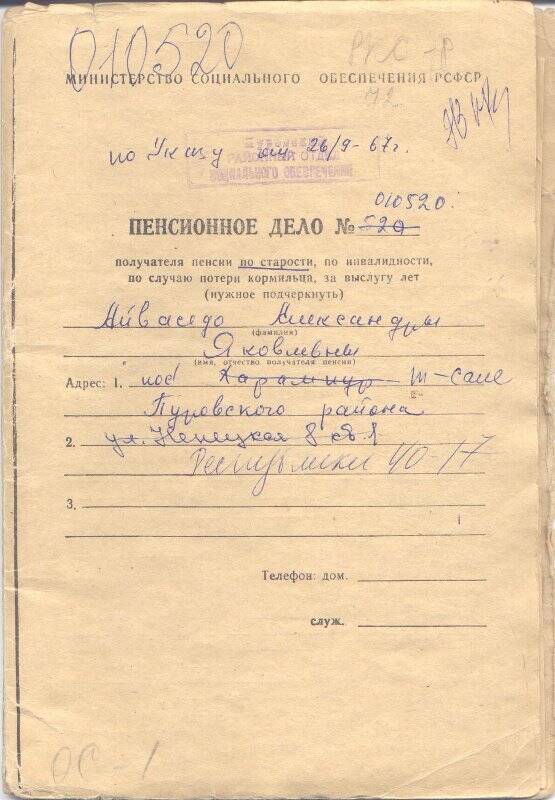 010520
РКС-Р
МИНИСТЕРСТВО СОЦИАЛЬНОГО ОБЕСПЕЧЕНИЯ РСФСР
72
по Указу от 26/9-67г.
ПУРОВСКИЙ
РАЙОННЫЙ ОТДЕЛ
СОЦИАЛЬНОГО ОБЕСПЕЧЕНИЯ
010520.
ПЕНСИОННОЕ ДЕЛО № 520
получателя пенсии по старости, по инвалидности,
по случаю потери кормильца, за выслугу лет
(нужное подчеркнуть)
Айваседо Александры
(фамилия)
Яковлевны
(имя, отчество получателя пенсии)
Адрес: 1. пос Харампур Т-Сале
Пуровского района
2. ул. Ненецкая 8 кв. 1
Республики 40-17
3.
Телефон: дом.
служ.
ОС-1